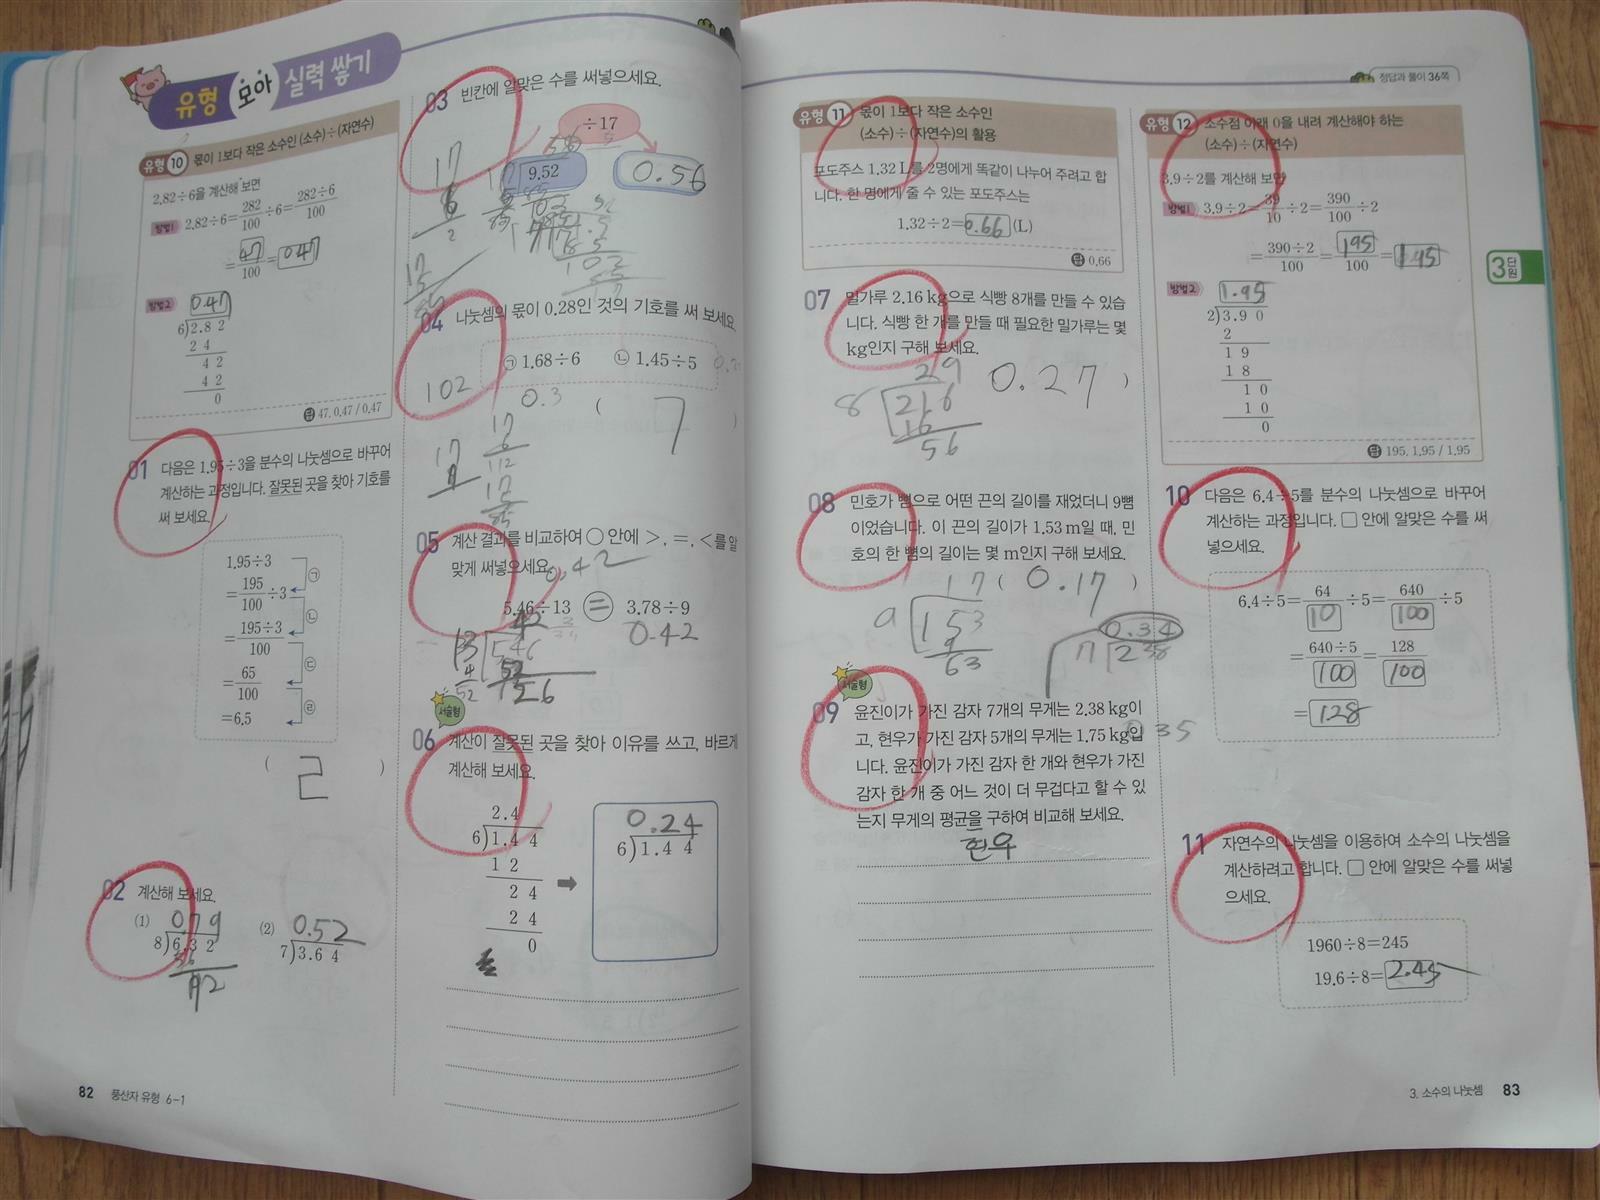 유형 모아 실력 쌓기
유형 10 몫이 1보다 작은 소수인 (소수)÷(자연수)
2.82÷6을 계산해 보면
방법1 2.82÷6=282/100÷6=282÷6/100
=47/100=0.47
방법2 0.47
6)2.8 2
2 4
4 2
4 2
0
답 47, 0.47 / 0.47
01 다음은 1.95÷3을 분수의 나눗셈으로 바꾸어
계산하는 과정입니다. 잘못된 곳을 찾아 기호를
써 보세요.
1.95÷3
=195/100÷3 ㉠
=195÷3/100 ㉡
=65/100 ㉢
=6.5 ㉣
( ㄹ )
02 계산해 보세요.
(1) 0.79
8)6.3 2
56
72
(2) 0.52
7)3.6 4
03 빈칸에 알맞은 수를 써넣으세요.
÷17
9.52 0.56
17
6
2
04 나눗셈의 몫이 0.28인 것의 기호를 써 보세요.
㉠ 1.68÷6 ㉡ 1.45÷5
102
0.3
( ㄱ )
05 계산 결과를 비교하여 ○ 안에 >, =, <를 알
맞게 써넣으세요.
0.42
5.46÷13 = 3.78÷9
0.42
42
13 546
52
26
서술형
06 계산이 잘못된 곳을 찾아 이유를 쓰고, 바르게
계산해 보세요.
2.4
6)1.4 4
1 2
2 4
2 4
0
0.24
6)1.4 4
82 풍산자 유형 6-1
정답과 풀이 36쪽
유형 11 몫이 1보다 작은 소수인
(소수)÷(자연수)의 활용
포도주스 1.32 L를 2명에게 똑같이 나누어 주려고 합
니다. 한 명에게 줄 수 있는 포도주스는
1.32÷2=0.66(L)
답 0.66
07 밀가루 2.16 kg으로 식빵 8개를 만들 수 있습
니다. 식빵 한 개를 만들 때 필요한 밀가루는 몇
kg인지 구해 보세요.
0.27 )
29
8 216
16
56
08 민호가 뼘으로 어떤 끈의 길이를 재었더니 9뼘
이었습니다. 이 끈의 길이가 1.53 m일 때, 민
호의 한 뼘의 길이는 몇 m인지 구해 보세요.
( 0.17 )
17
9 153
9
63
0.34
7 238
서술형
09 윤진이가 가진 감자 7개의 무게는 2.38 kg이
고, 현우가 가진 감자 5개의 무게는 1.75 kg입
니다. 윤진이가 가진 감자 한 개와 현우가 가진
감자 한 개 중 어느 것이 더 무겁다고 할 수 있
는지 무게의 평균을 구하여 비교해 보세요.
0.35
현우
유형 12 소수점 아래 0을 내려 계산해야 하는
(소수)÷(자연수)
3.9÷2를 계산해 보면
방법1 3.9÷2=39/10÷2=390/100÷2
=390÷2/100=195/100=1.95
방법2 1.95
2)3.9 0
2
1 9
1 8
1 0
1 0
0
답 195, 1.95 / 1.95
3단원
10 다음은 6.4÷5를 분수의 나눗셈으로 바꾸어
계산하는 과정입니다. □ 안에 알맞은 수를 써
넣으세요.
6.4÷5=64/10÷5=640/100÷5
=640÷5/100=128/100
=1.28
11 자연수의 나눗셈을 이용하여 소수의 나눗셈을
계산하려고 합니다. □ 안에 알맞은 수를 써넣
으세요.
1960÷8=245
19.6÷8=2.45
3. 소수의 나눗셈 83